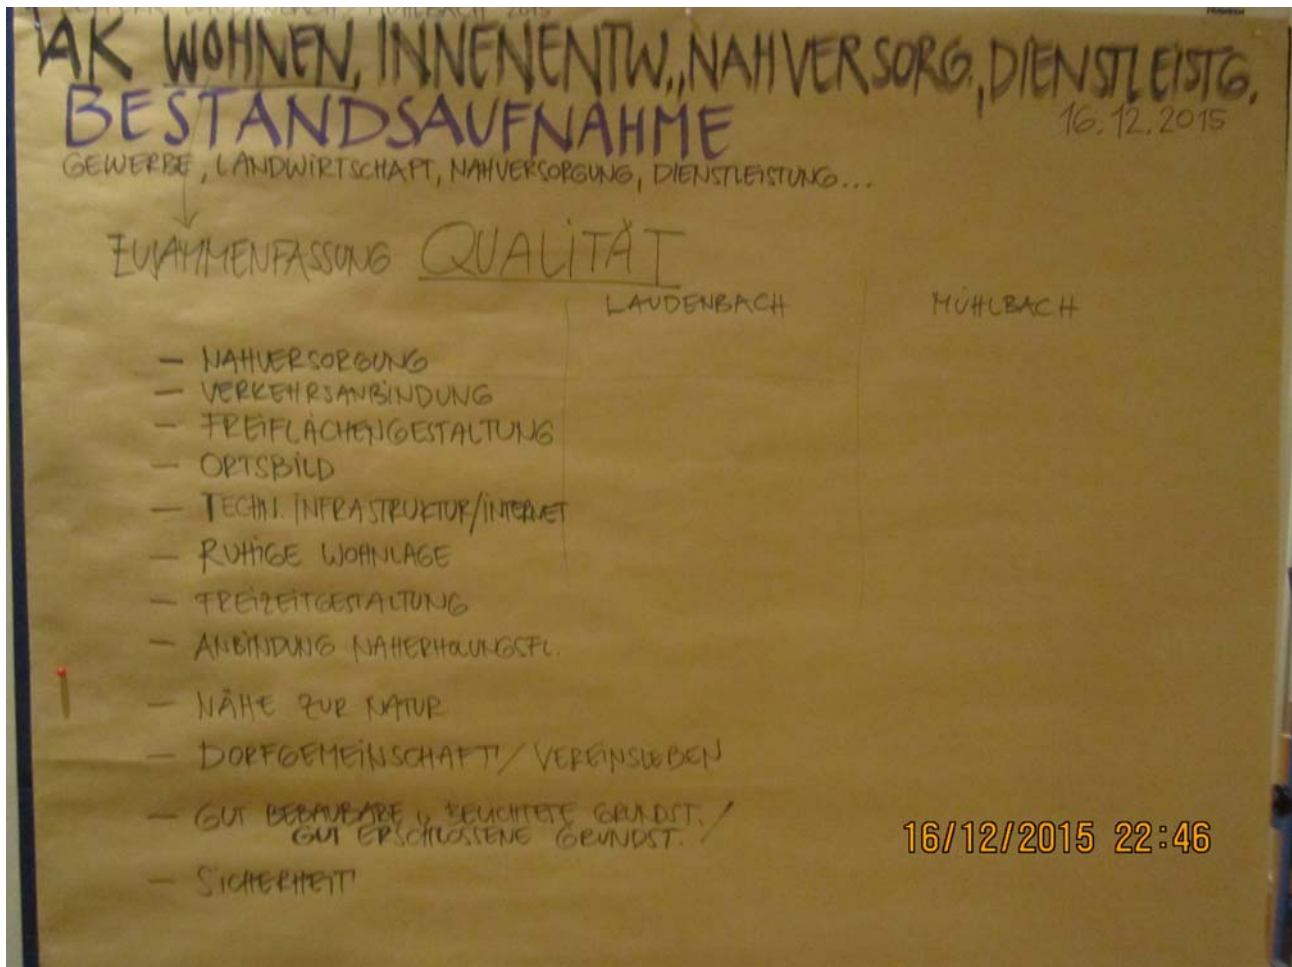 LAUDENBACH / MÜHLBACH 2015
AK WOHNEN, INNENENTW., NAHVERSORG., DIENSTLEISTG.
BESTANDSAUFNAHME
16.12.2015
GEWERBE, LANDWIRTSCHAFT, NAHVERSORGUNG, DIENSTLEISTUNG...
ZUSAMMENFASSUNG QUALITÄT
LAUDENBACH MÜHLBACH
– NAHVERSORGUNG
– VERKEHRSANBINDUNG
– FREIFLÄCHENGESTALTUNG
– ORTSBILD
– TECHN. INFRASTRUKTUR/INTERNET
– RUHIGE WOHNLAGE
– FREIZEITGESTALTUNG
– ANBINDUNG NAHERHOLUNGSFL.
– NÄHE ZUR NATUR
– DORFGEMEINSCHAFT / VEREINSLEBEN
– GUT BEBAUBARE u. BELICHTETE GRUNDST. /
GUT ERSCHLOSSENE GRUNDST.
– SICHERHEIT
16/12/2015 22:46